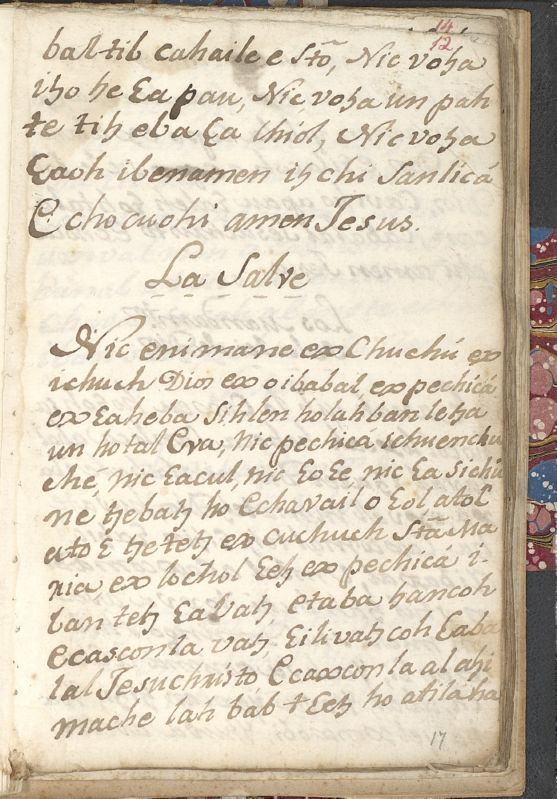 14
12
baltib cahaile e Sto, Nic voʒa
iʒo he Ɛa pau, Nic voʒa un pah
te tiʒ eba Ɛa Chiol, Nic voʒa
Ɛaoh ibenamen iʒchi Santicá
Echocuohi amen Jesus.
La Salve
Nic enimane ex Chuchú ex
ichuch Dios ex oibabal, ex pechicá
ex Ɛaheba Sihlen holahban leʒa
un hotal Eva, Nic pechica schuenchu
ché, nic Ɛacul, nic Ɛo Ɛe, nic Ɛa Sichú
ne tʒebaʒ ho Cchavail o Ɛol atol
tʒetetʒ ex cuchuch Sta Ma
ria, ex lochol Ɛeʒ ex pechicá i-
ban tetʒ Ɛa Vaʒ, etaba hancoh
ecasconla vaʒ Ɛilivaʒcoh Ɛaba
lal Jesuchristo Ecaxconla al aʒi
mache lah bab t Ɛeʒ ho atilaha
17